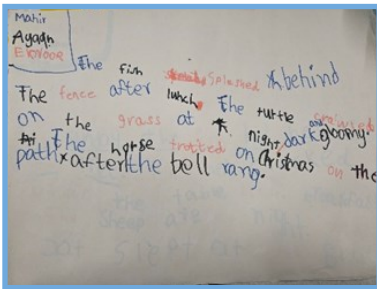 Mahir
Ayaan
The fish splashed behind
The fence after lunch. The turtle
on the grass at night, dark and gloomy.
The horse trotted on Christmas on the
path after the bell rang.